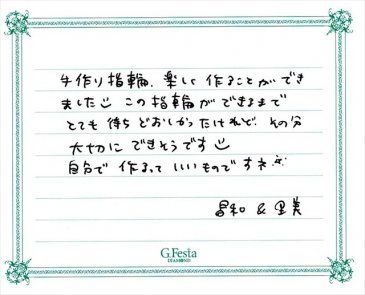 手作り指輪、楽しく作ることができ
ました☺ この指輪ができるまで
とても待ちどおしかったけれど、その分
大切にできそうです☺
自分で作るっていいものですネ☺
昌和 & 里美
G.Festa
DIAMOND